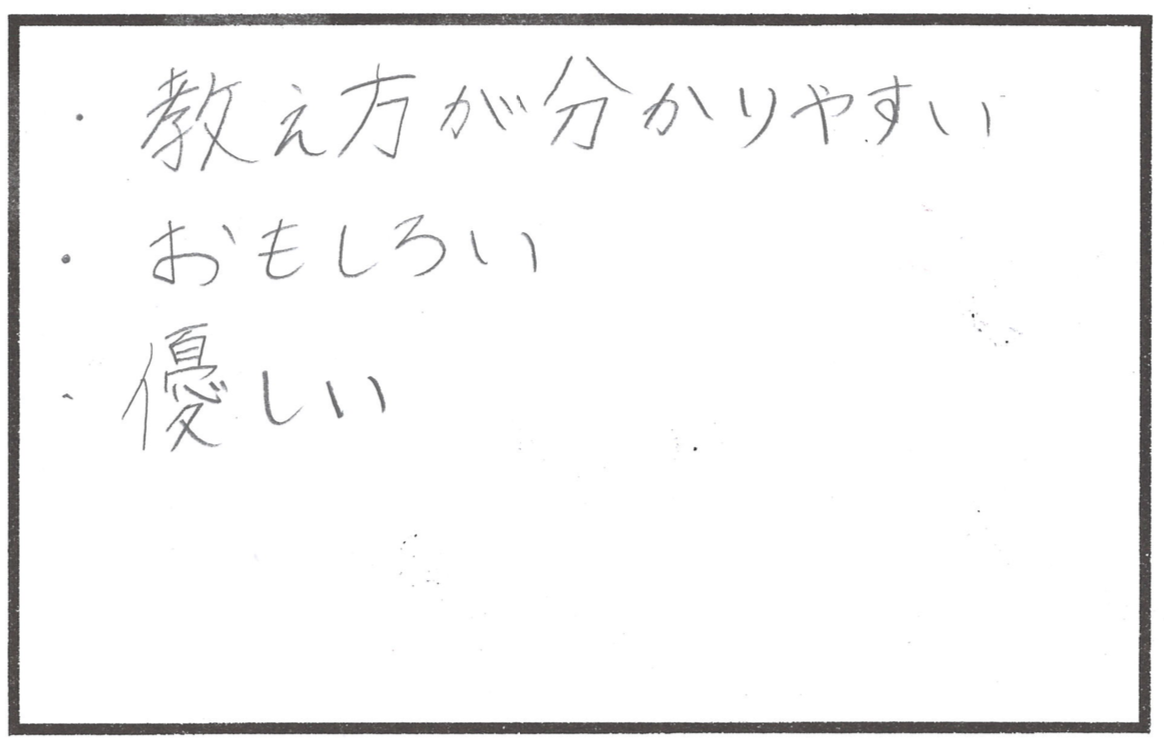 ・教え方が分かりやすい
・おもしろい
・優しい